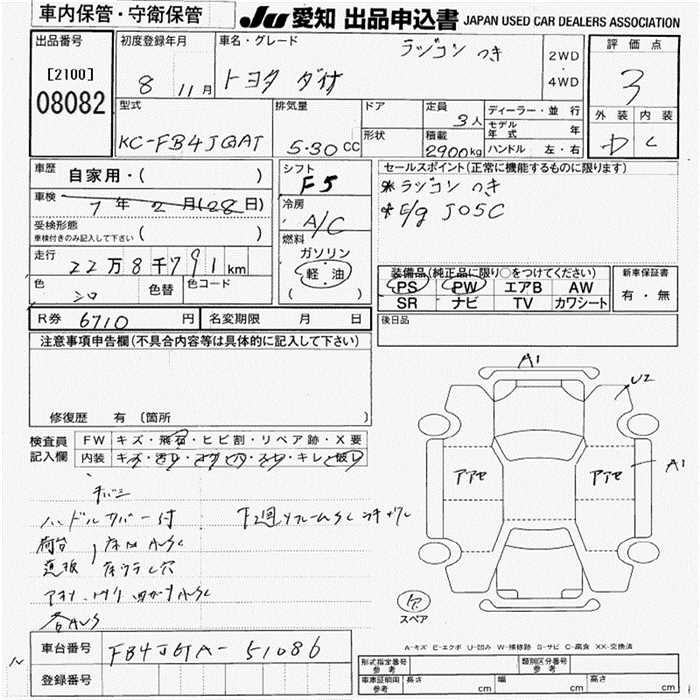 車内保管・守衛保管
JU 愛知 出品申込書 JAPAN USED CAR DEALERS ASSOCIATION
出品番号
[2100]
08082
初度登録年月
8 11月
車名・グレード
トヨタ ダイナ
ラジコン つき
2WD
・
4WD
評価点
3
外装 内装
D C
型式
KC-FB4JGAT
排気量
5.30 CC
ドア
形状
定員
3人
積載
2900kg
ディーラー・並行
モデル年式 年
ハンドル 左・右
車歴
自家用・( )
車検
7年 2月(28日)
受検形態
車検付きのみ記入して下さい ( )
走行
22万8千791km
色
シロ
色替
色コード
シフト
F5
冷房
A/C
燃料
ガソリン
軽油
( )
セールスポイント(正常に機能するものに限ります)
※ラジコン つき
※E/g J05C
装備品(純正品に限り○をつけてください)
PS PW エアB AW
SR ナビ TV カワシート
新車保証書
有・無
R券 6710円
名変期限 月 日
後日品
注意事項申告欄(不具合内容等は具体的に記入して下さい)
修復歴 有(箇所 )
検査員
記入欄
FW キズ・飛石・ヒビ割・リペア跡・X要
内装 キズ・汚れ・コゲ・穴・スレ・キレ・破レ
ハンドルカバー付
荷台
A1
U2
アアセ
アアセ
A1
スペア
A-キズ E-エクボ U-凹み W-補修跡 S-サビ C-腐食 XX-交換済
車台番号
FB4JGA-51086
登録番号
形式指定番号 参考
類別区分番号 参考
車庫証明用 参考
長さ cm
幅 cm
高さ cm